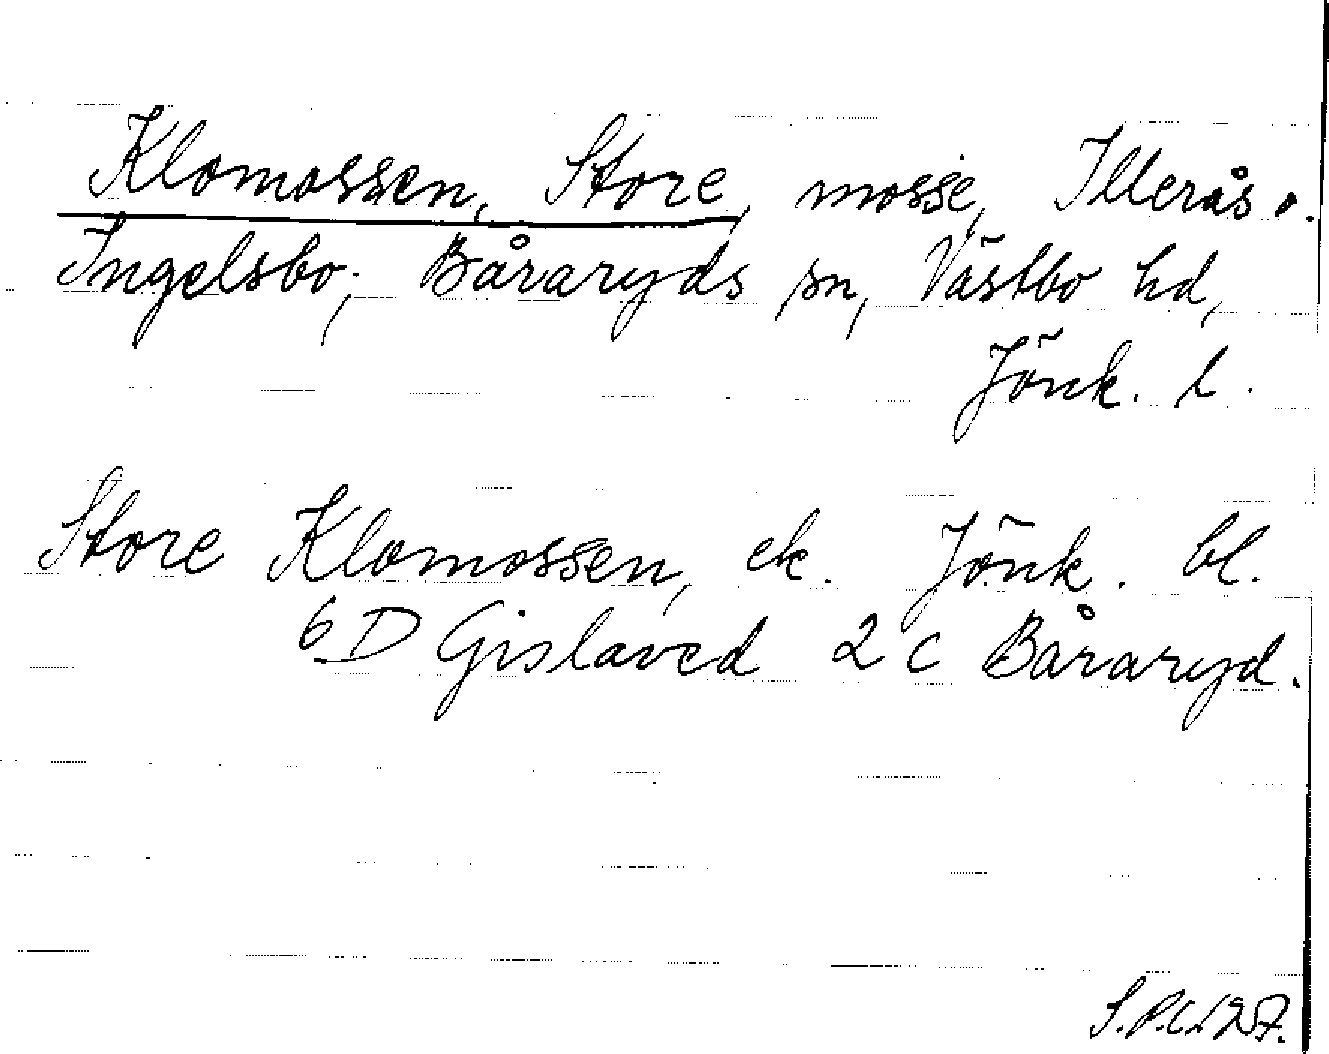 Klomossen, Store, mosse, Illerås o.
Ingelsbo, Båraryds sn, Västbo hd,
Jönk. l.
Store Klomossen, ek. Jönk. bl.
6 D Gislaved 2 c Båraryd.